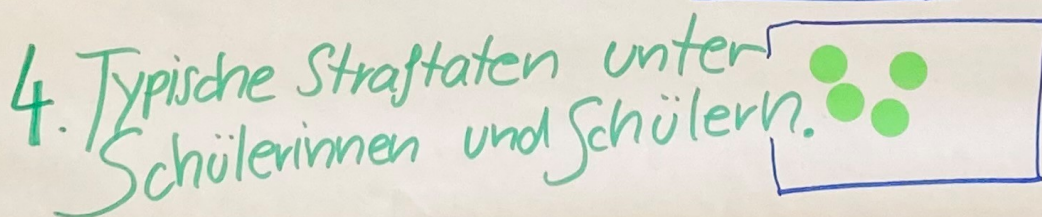 4. Typische Straftaten unter
Schülerinnen und Schülern.